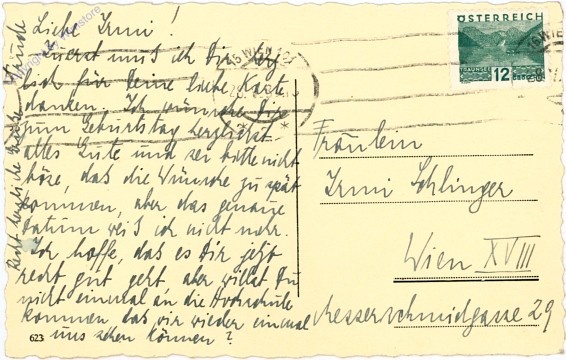 Liebe Irmi!
Zuerst muß ich Dir herz-
lich für Deine liebe Karte
danken. Ich wünsche Dir
zum Geburtstag herzlichst
alles Gute und sei bitte nicht
böse, das die Wünsche zu spät
kommen, aber das genaue
Datum weiß ich nicht mehr.
Ich hoffe, das es Dir jetzt
recht gut geht, aber willst Du
nicht einmal an die Hochschule
kommen das wir wieder einmal
uns sehen können?
Recht herzliche
623
ÖSTERREICH
12
WIEN
Fräulein
Irmi Schlinger
Wien XVIII
Messerschmidgasse 29